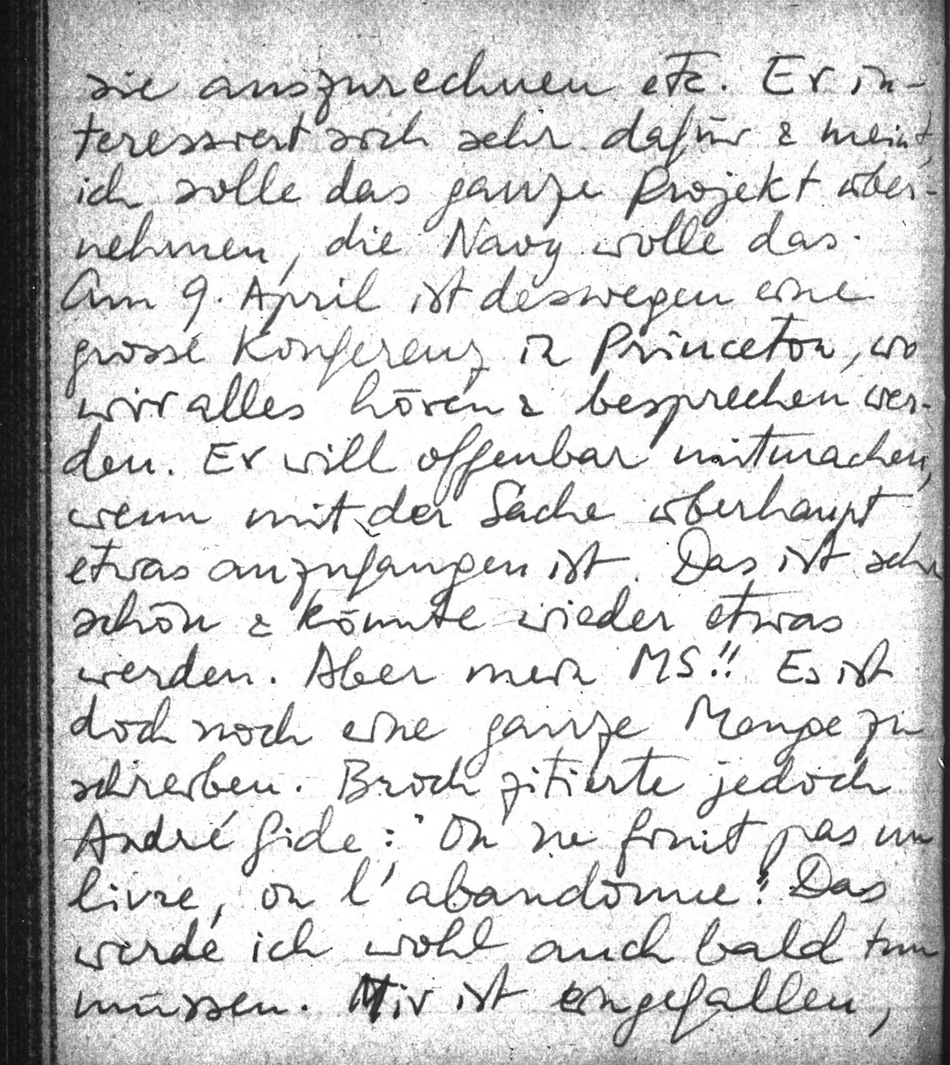 sie auszurechnen etc. Er in-
teressiert sich sehr dafür & meint,
ich solle das ganze Projekt über-
nehmen, die Navy wolle das.
Am 9. April ist deswegen eine
grosse Konferenz in Princeton, wo
wir alles hören & besprechen wer-
den. Er will offenbar mitmachen,
wenn mit der Sache überhaupt
etwas anzufangen ist. Das ist sehr
schön & könnte wieder etwas
werden. Aber mein MS!! Es ist
doch noch eine ganze Menge zu
schreiben. Broch zitierte jedoch
André Gide: "On ne finit pas un
livre, on l'abandonne". Das
werde ich wohl auch bald tun
müssen. Mir ist eingefallen,